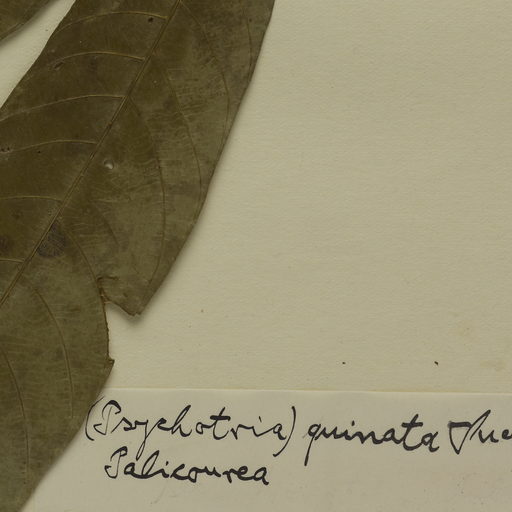 (Psychotria) quinata
Palicourea